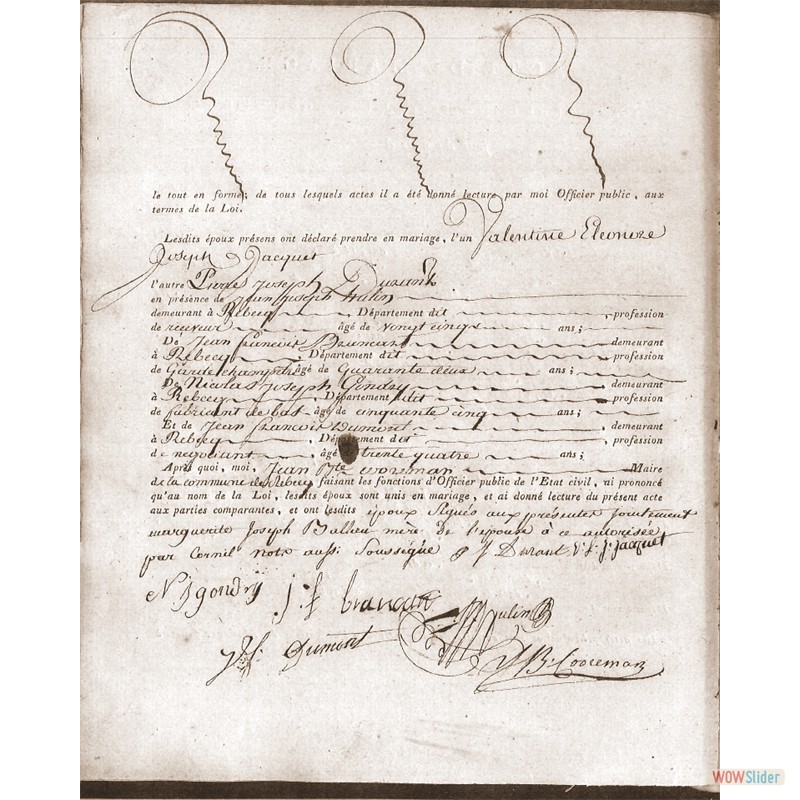 le tout en forme; de tous lesquels actes il a été donné lecture par moi Officier public, aux
termes de la Loi.
Lesdits époux présens ont déclaré prendre en mariage, l'un Valentine Eleonore
Joseph Jacquet
l'autre Pierre Joseph Durant
en présence de Jean Joseph hulin
demeurant à Rebecq Département dit profession
de receveur âgé de vingt cinq ans;
De Jean francois Brancart demeurant
à Rebecq Département dit profession
de Garde champetre âgé de Quarante deux ans;
De Nicolas Joseph Gondry demeurant
à Rebecq Département dit profession
de fabricant de bas âgé de cinquante cinq ans;
Et de Jean francois Dumont demeurant
à Rebecq Département dit profession
de negotiant âgé trente quatre ans;
Après quoi, moi, Jean Bte Cooreman Maire
de la commune de Rebecq faisant les fonctions d'Officier public de l'Etat civil, ai prononcé
qu'au nom de la Loi, lesdits époux sont unis en mariage, et ai donné lecture du présent acte
aux parties comparantes, et ont lesdits époux Signés aux présentes Jointement
marguerite Joseph mère de l'épouse à ce autorisée
par aussi Soussigné P J Durant V. E. J. Jacquet
N J gondry j: f brancart hulin
J f. Dumont J B. Cooreman
WOWSlider